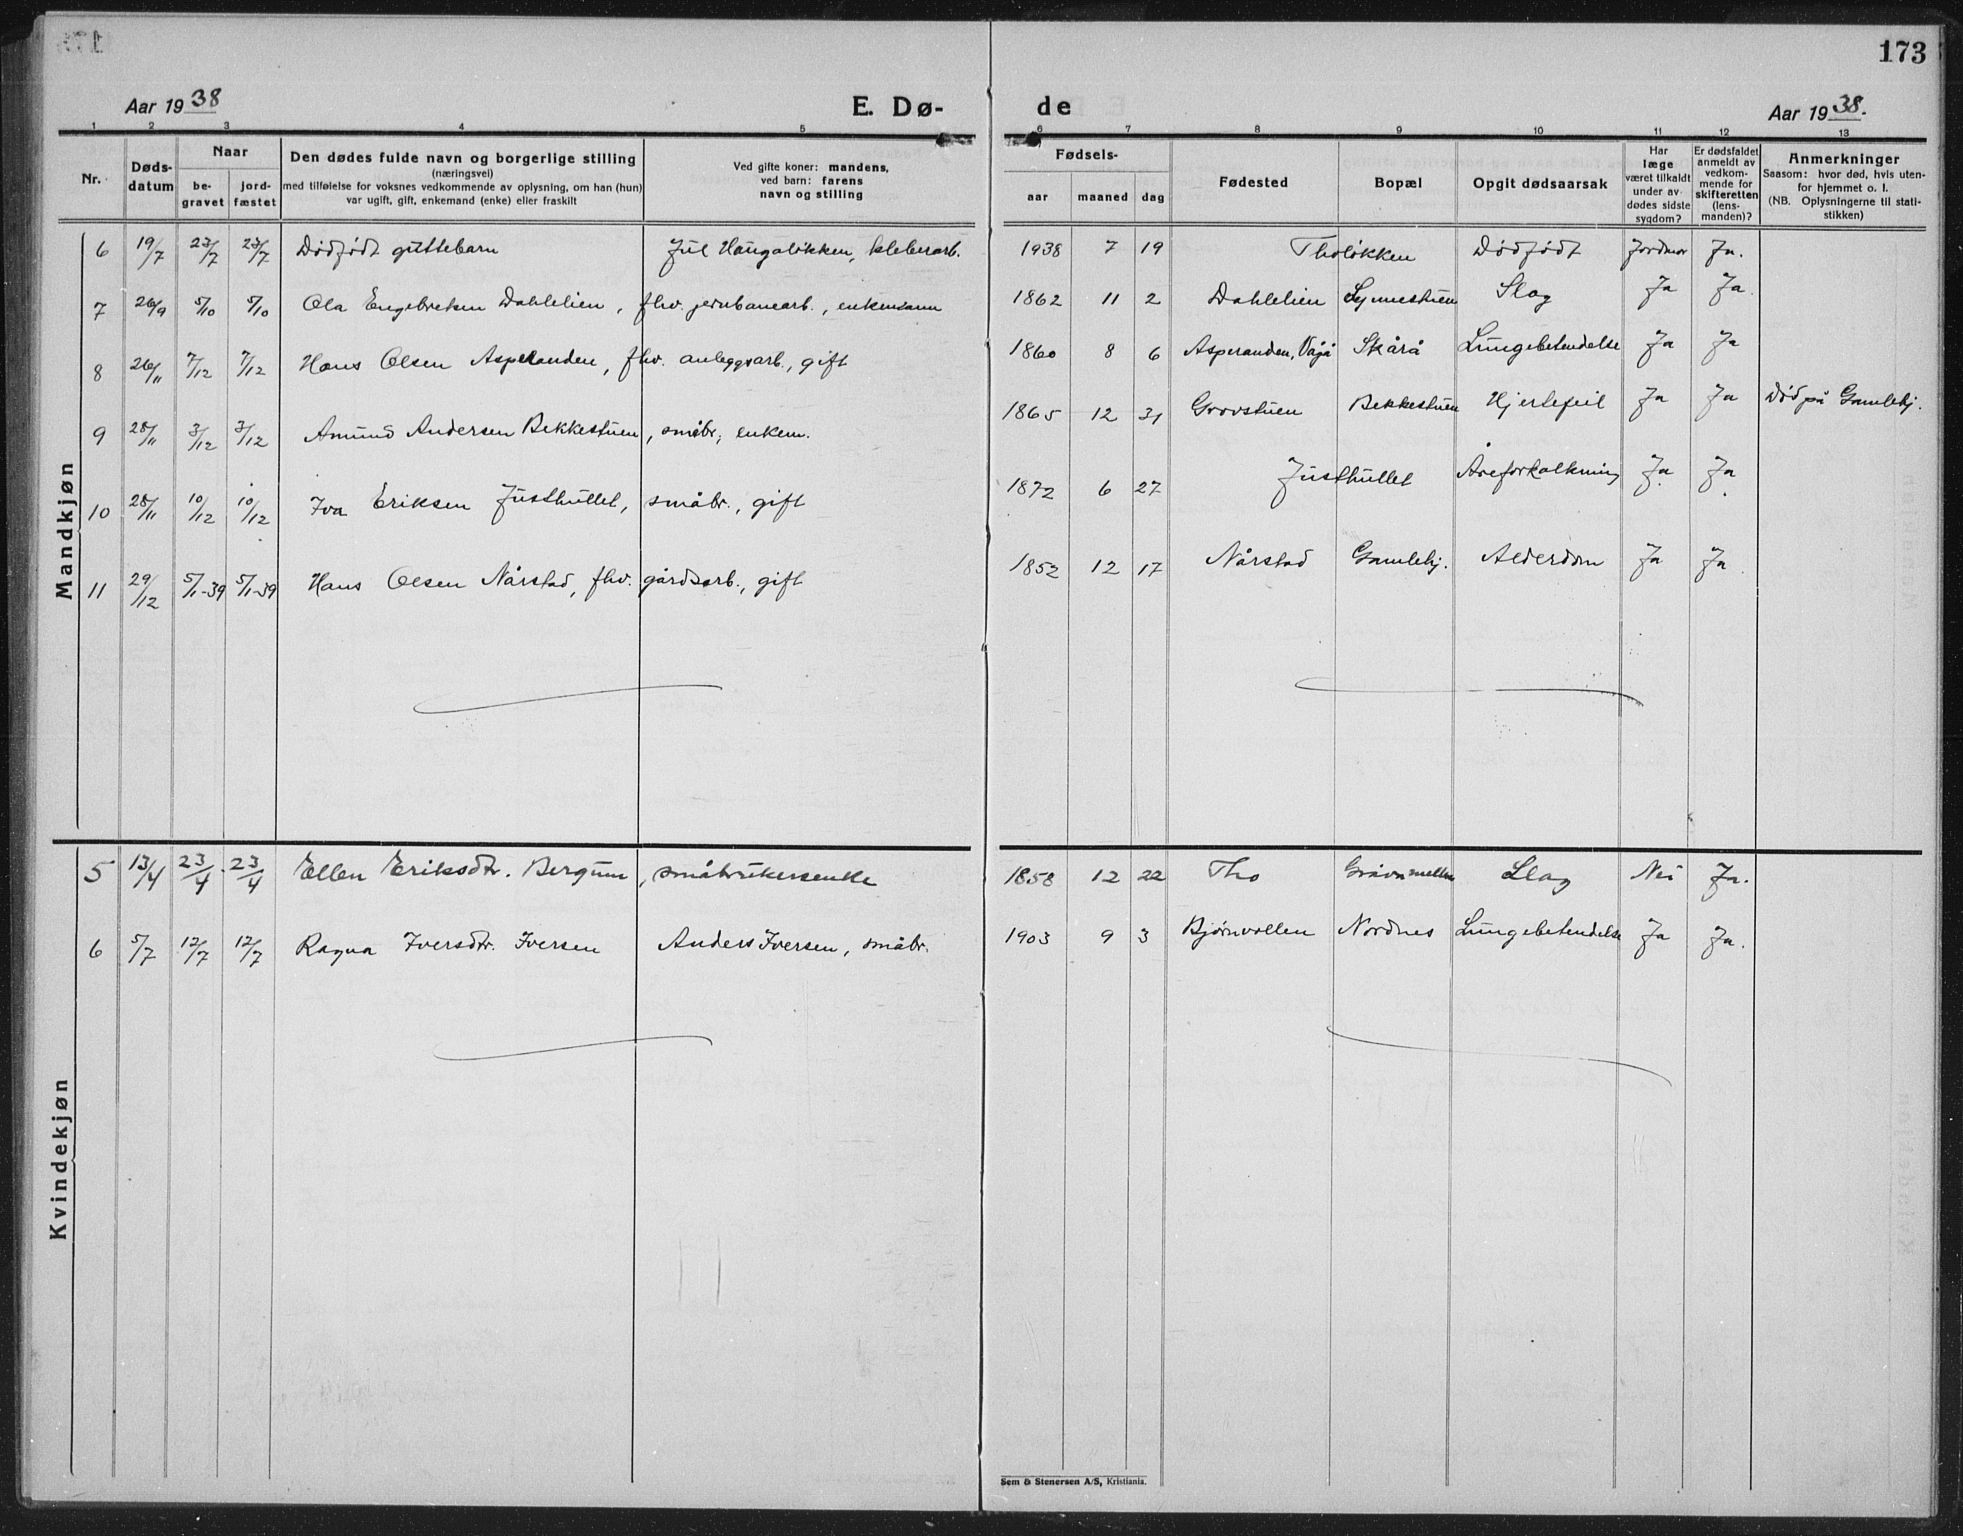 173
Aar 1938 E. Dø- de Aar 1938.
1 2 3 4 5 6 7 8 9 10 11 12 13
Nr. Døds-datum Naar be-gravet jord-fæstet Den dødes fulde navn og borgerlige stilling (næringsvei) med tilføielse for voksnes vedkommende av oplysning, om han (hun) var ugift, gift, enkemand (enke) eller fraskilt Ved gifte koner: mandens, ved barn: farens navn og stilling Fødsels- aar maaned dag Fødested Bopæl Opgit dødsaarsak Har læge været tilkaldt under av-dødes sidste sygdom? Er dødsfaldet anmeldt av vedkom-mende for skifteretten (lens-manden)? Anmerkninger Saasom: hvor død, hvis uten-for hjemmet o. l. (NB. Oplysningerne til stati-stikken)
Mandkjøn
6 19/7 23/7 23/7 Dødfødt guttebarn Jul Haugaløkken, kleberarb. 1938 7 19 Tholøkken Dødfødt Jordmor Ja.
7 26/9 5/10 5/10 Ola Engebretsen Dahlelien, fhv. jernbanearb., enkemann 1862 11 2 Dahlelien Synnestuen Slag Ja Ja
8 26/11 7/12 7/12 Hans Olsen Asperanden, fhv. anleggsarb., gift 1860 8 6 Asperanden, Vågå Skårå Lungebetendelse Ja Ja
9 28/11 3/12 3/12 Amund Andersen Bekkestuen, småbr., enkem. 1865 12 31 Grovstuen Bekkestuen Hjertefeil Ja Ja Død på Gamlehj.
10 28/11 10/12 10/12 Iva Eriksen Justhullet, småbr., gift 1872 6 27 Justhullet Åreforkalkning Ja Ja
11 29/12 5/1-39 5/1-39 Hans Olsen Nårstad, fhv. gårdsarb., gift 1852 12 17 Nårstad Gamlehj. Alderdom Ja Ja
Kvindekjøn
5 13/4 23/4 23/4 Ellen Eriksdtr. Bergum, småbrukerenke 1858 12 22 Tho Slag Nei Ja.
6 5/7 12/7 12/7 Ragna Iversdtr. Iversen Anders Iversen, småbr. 1903 9 3 Bjørnvollen Nordnes Lungebetendelse Ja Ja.
Sem & Stenersen A/S, Kristiania.